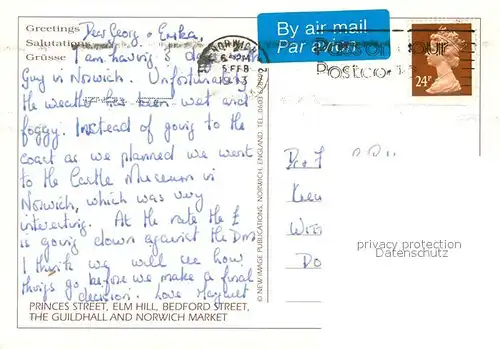 Greetings
Salutations
Grüsse
Dear Georg + Erika,
I am having 3 days with
Guy in Norwich. Unfortunately
the weather has been wet and
foggy. Instead of going to the
coast as we planned we went
to the Castle Museum in
Norwich, which was very
interesting. At the rate the £
is going down against the Dm
I think we will see how
things go before we make a final
decision. Love Margaret
PRINCES STREET, ELM HILL, BEDFORD STREET,
THE GUILDHALL AND NORWICH MARKET
© NEW IMAGE PUBLICATIONS, NORWICH, ENGLAND. TEL.
By air mail
Par avion
NORWICH
5 FEB
Postcode
24P
Wit
privacy protection
Datenschutz